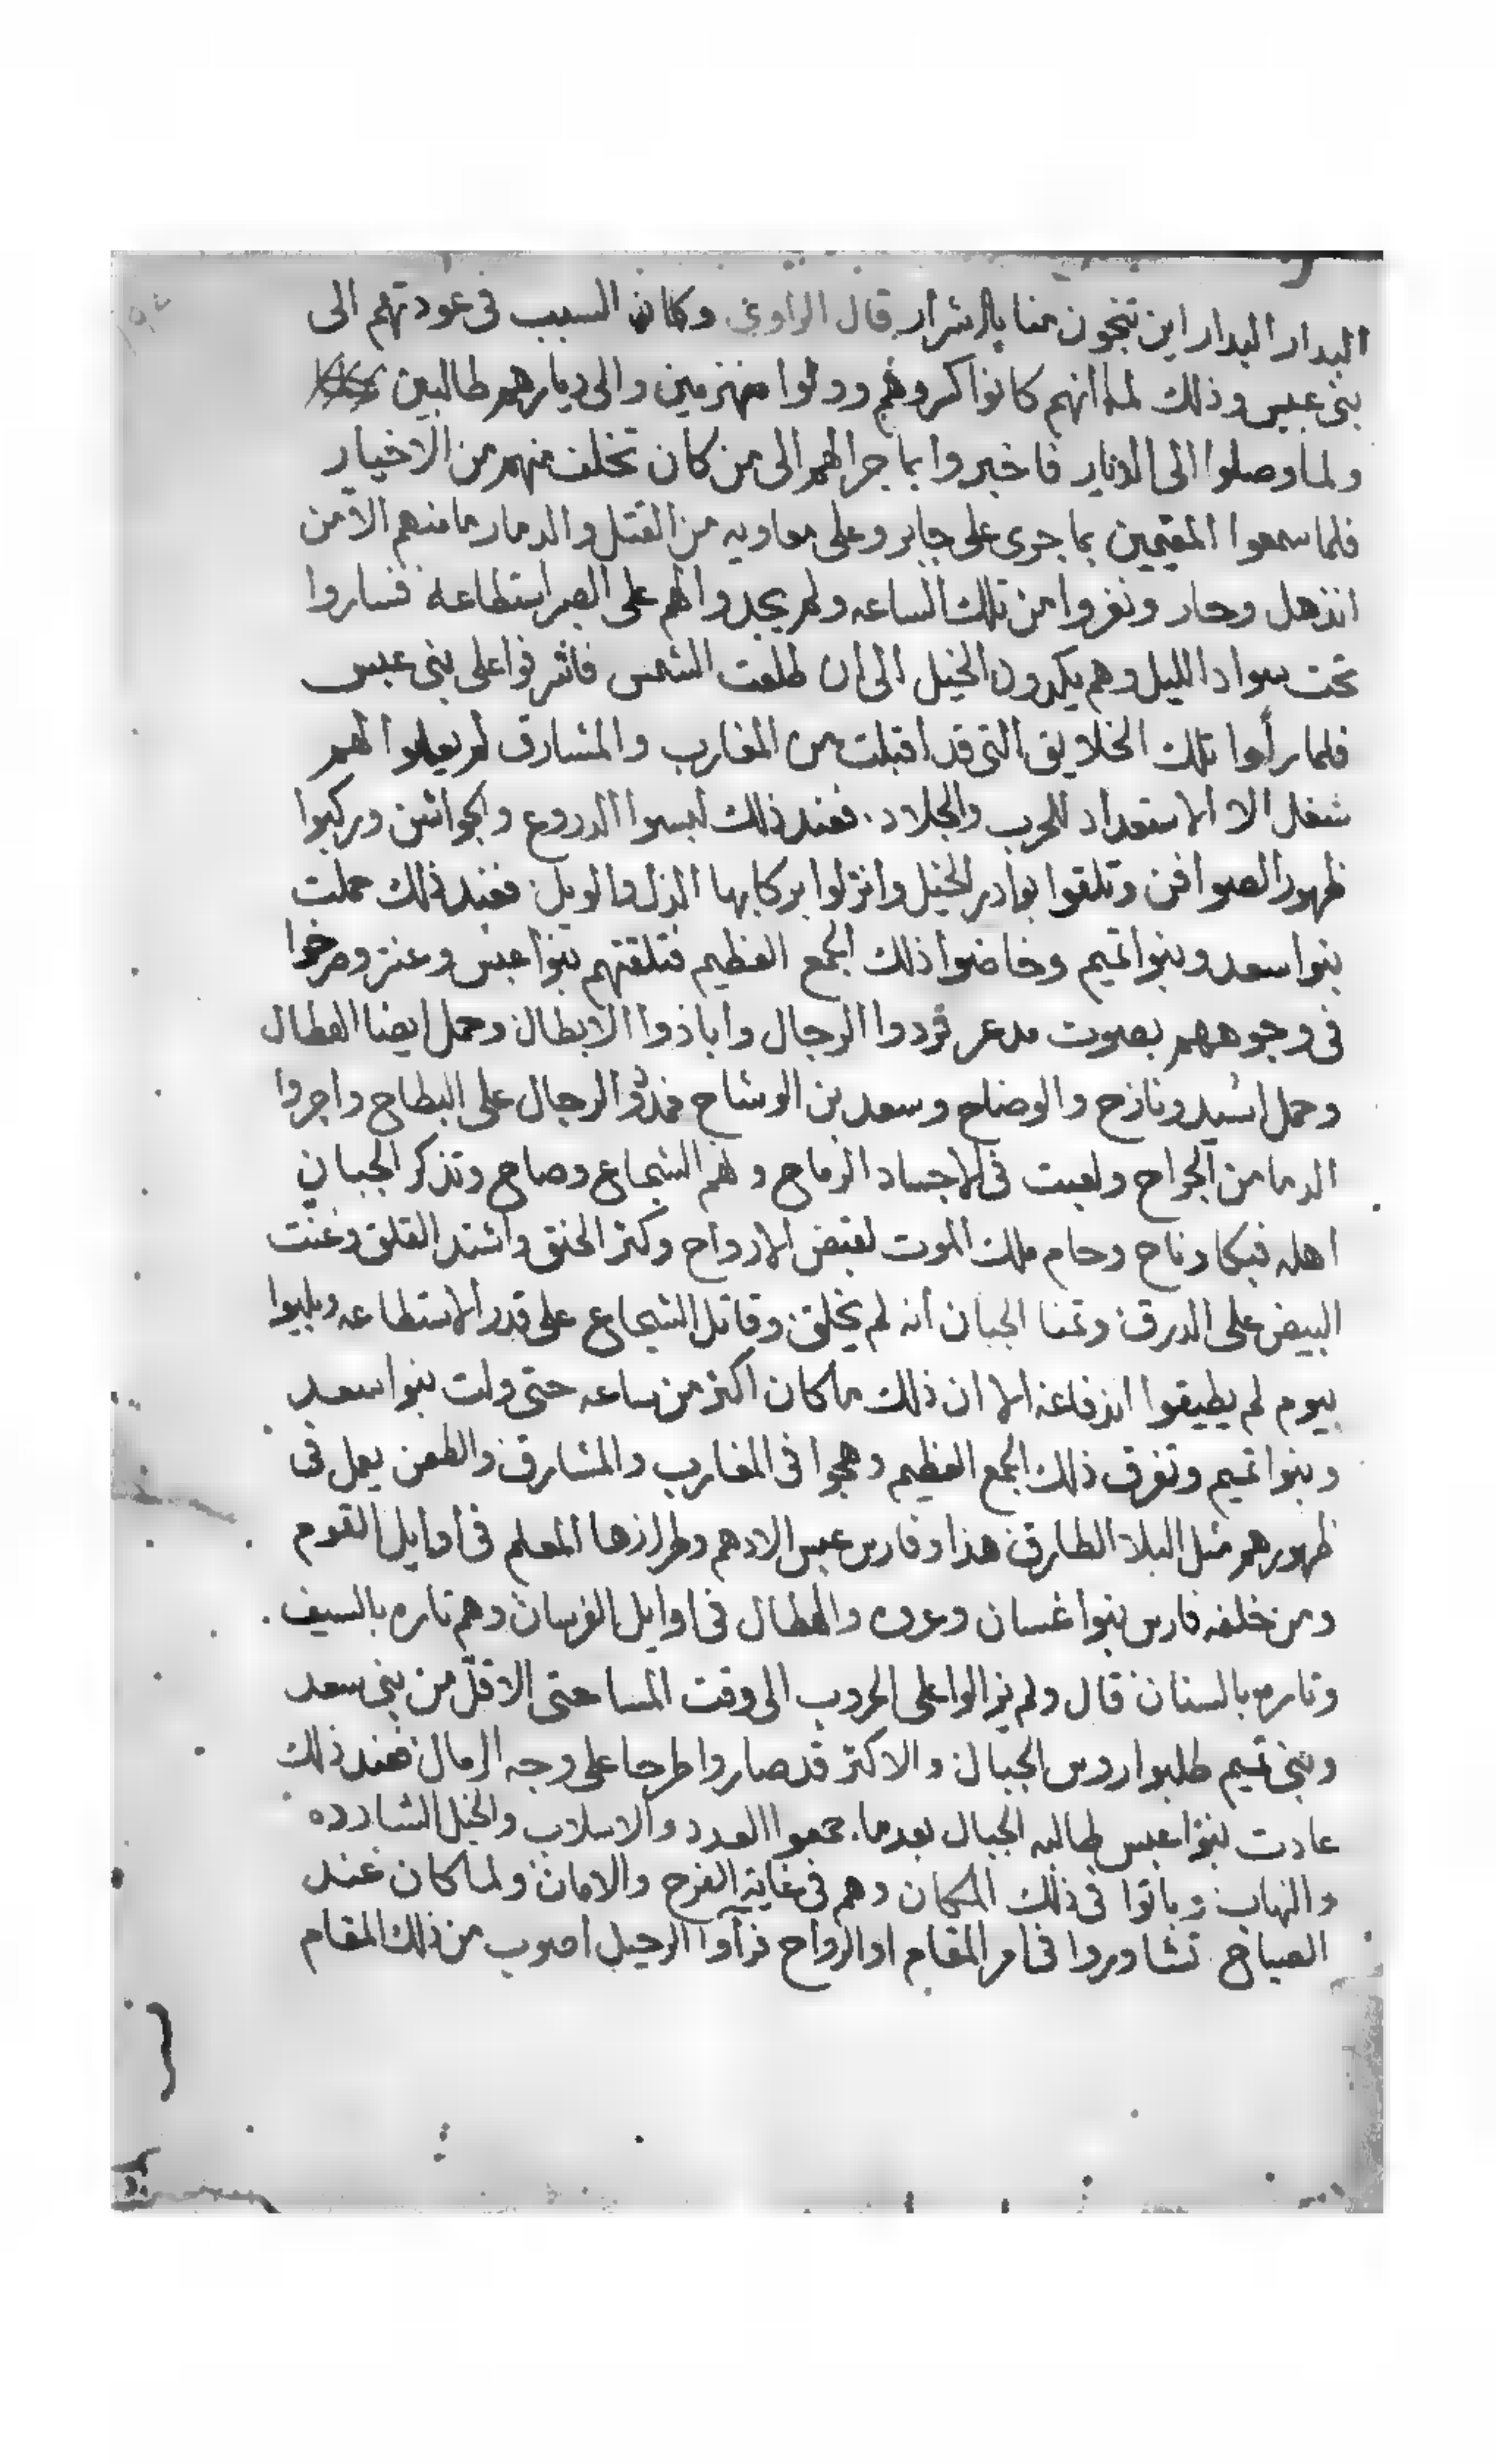 البدار البدار اين تنجون منا يا اشرار قال الراوي وكان السبب في عودتهم الى
بني عبس وذلك لما انهم كانوا كسروهم وولوا منهزمين والى ديارهم طالبين
ولما وصلوا الى الديار فاخبروا بما جرا لهم الى من كان تخلف منهم من الاخيار
فلما سمعوا المقيمين بما جرى على جابر وعلى معاويه من القتل والدمار ما منهم الا من
انذهل وحار ونفروا من تلك الساعه ولم يجدوا لهم على الصبر استطاعة فساروا
تحت سواد الليل وهم يكدون الخيل الى ان طلعت الشمس فاشرفوا على بني عبس
فلما رأوا تلك الخلايق التي قد اقبلت من المغارب والمشارق لم يعملوا لهم
شغل الا الاستعداد للحرب والجلاد. فعند ذلك لبسوا الدروع والجواشن وركبوا
ظهور الصوافن وتلقوا بوادر الخيل وانزلوا بركابها الذل والويل فعند ذلك حملت
بنوا سعد وبنوا تميم وخاضوا ذلك الجمع العظيم فتلقتهم بنوا عبس وعنتر وصرخوا
في وجوههم بصوت مدعر فردوا الرجال واباذوا الابطال وحمل ايضا الهطال
وحمل اشيد ونازح والوضاح وسعد بن الوشاح فمدوا الرجال على البطاح واجروا
الدما من الجراح ولعبت في الاجساد الرماح وهم الشجاع وصاح وتذكر الجبان
اهله فبكا وناح وحام ملك الموت لقبض الارواح وكثر الحنق واشتد القلق وغنت
البيض على الدرق وتمنا الجبان أنه لم يخلق وقاتل الشجاع على قدر الاستطاعه وبليوا
بيوم لم يطيقوا اندفاعه الا ان ذلك ما كان اكثر من ساعه حتى ولت بنوا سعد
وبنوا تميم وتفرق ذلك الجمع العظيم وهجوا في المغارب والمشارق والطعن يعمل في
ظهورهم مثل البلا الطارق هذا وفارس عبس الادهم وطرازها المعلم في أوايل القوم
ومن خلفه فارس بنوا غسان وعروه والهطال في اوايل الفرسان وهم تاره بالسيف
وتاره بالسنان قال ولم يزالوا على الحروب الى وقت المسا حتى الاقل من بني سعد
وبني تميم طلبوا روس الجبال والاكثر قد صاروا طرحا على وجه الرمال فعند ذلك
عادت بنوا عبس طالبه الجبال بعدما جمعوا العدد والاسلاب والخيل الشارده
والنهاب وباتوا في ذلك المكان وهم في غاية الفرح والامان ولما كان عند
الصباح تشاوروا في امر المقام او الرواح فرأوا الرحيل اصوب من ذلك المقام